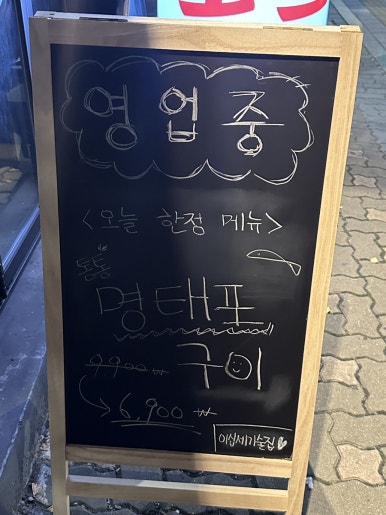 영업중
<오늘 한정 메뉴>
통통
명태포
9,900₩ 구이
→ 6,900 ₩
이십세기술집